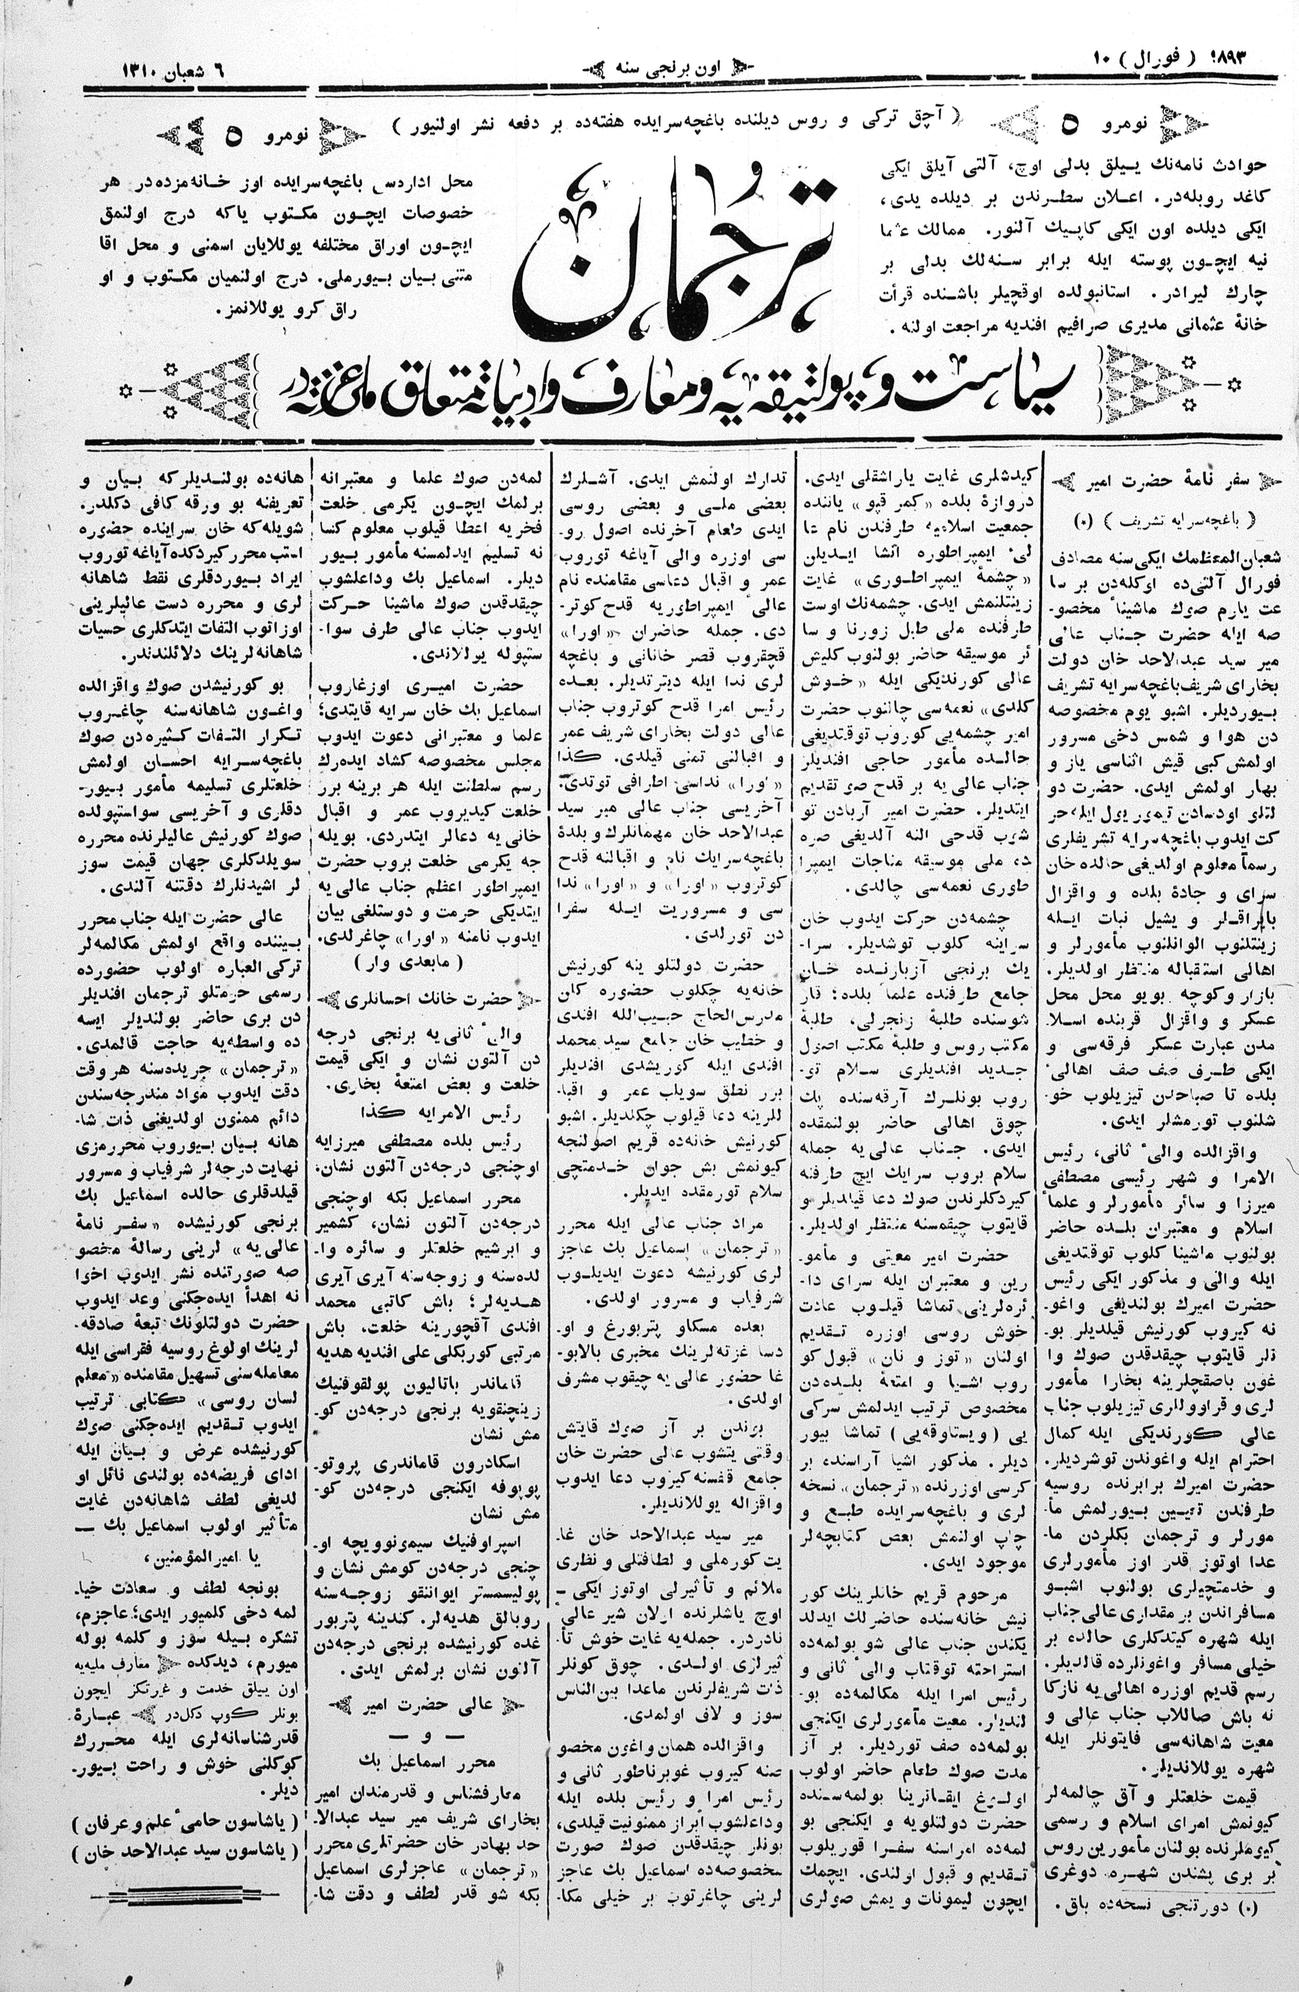 ١٨٩٣ ( فورال ) ١٠
اون برنجی سنه
٦ شعبان ١٣١٠
نومرو ٥
( آچق تركی و روس دیلنده باغچه‌سرایده هفته‌ده بر دفعه نشر اولنیور )
نومرو ٥
حوادث نامه‌نك ییلق بدلی اوچ، آلتی آیلق ایكی
كاغد روبله‌در. اعلان سطرندن بر دیلده یدی،
ایكی دیلده اون ایكی كاپیك آلنور. ممالك عثما
نیه ایچون پوسته ایله برابر سنه‌لك بدلی بر
چارك لیرادر. استانبولده اوقچیلر باشنده قرأت
خانهٔ عثمانی مدیری صرافیم افندیه مراجعت اولنه.
ترجمان
محل اداره‌سی باغچه‌سرایده اوز خانه‌مزده‌در هر
خصوصات ایچون مكتوب یاكه درج اولنمق
ایچون اوراق مختلفه یوللایان اسمنی و محل اقا
متنی بیان بیورملی. درج اولنمیان مكتوب و او
راق كرو یوللانمز.
سیاست و پولتیقه‌یه و معارف و ادبیاته متعلق ملی غزته‌در
سفر نامهٔ حضرت امیر
( باغچه‌سرایه تشریف ) (٠)
شعبان المعظمك ایكی سنه مصادف
فورال آلتی‌ده اوكله‌دن بر سا
عت یارم صوك ماشینا مخصو-
صه ایله حضرت جناب عالی
میر سید عبدالاحد خان دولت
بخارای شریف باغچه‌سرایه تشریف
بیوردیلر. اشبو یوم مخصوصه
دن هوا و شمس دخی مسرور
اولمش كبی قیش اثناسی یاز و
بهار اولمش ایدی. حضرت دو
لتلو اودسادن تیمور یول ایله حر
كت ایدوب باغچه‌سرایه تشریفلری
رسماً معلوم اولدیغی حالده خان
سرای و جادهٔ بلده و واقزال
بایراقلر و یشیل نبات ایله
زینتلنوب الوانلنوب مأمورلر و
اهالی استقباله منتظر اولدیلر.
بازار و كوچه بویو محل محل
عسكر و واقزال قربنده اسلا
مدن عبارت عسكر فرقه‌سی و
ایكی طرف صف صف اهالیٔ
بلده تا صباحدن تیزیلوب خو-
شلنوب تورمشلر ایدی.
واقزالده والیٔ ثانی، رئیس
الامرا و شهر رئیسی مصطفی
میرزا و سائر مأمورلر و علماءٔ
اسلام و معتبران بلده حاضر
بولنوب ماشینا كلوب توقتدیغی
ایله والی و مذكور ایكی رئیس
حضرت امیرك بولندیغی واغو-
نه كیروب كورنیش قیلدیلر بو-
نلر قایتوب چیقدقدن صوك وا
غون باصقچلرینه بخارا مأمور
لری و قراوولری تیزیلوب جناب
عالی كورندیكی ایله كمال
احترام ایله واغوندن توشردیلر.
حضرت امیرك برابرنده روسیه
طرفندن تعیین بیورلمش مأ-
مورلر و ترجمان بكلردن ما-
عدا اوتوز قدر اوز مأمورلری
و خدمتچیلری بولنوب اشبو
مسافراندن بر مقداری عالی جناب
ایله شهره كیتدكلری حالده بر
خیلی مسافر واغونلرده قالدیلر.
رسم قدیم اوزره اهالی‌یه نازكا
نه باش صاللاب جناب عالی و
معیت شاهانه‌سی فایتونلر ایله
شهره یوللاندیلر.
قیمت خلعتلر و آق چالمه‌لر
كیونمش امرای اسلام و رسمی
كییملرنده بولنان مأمورین روس
بر بری پشندن شهره دوغری
(٠) دورتنجی نسخه‌ده باق.
كیدشلری غایت یاراشقلی ایدی.
دروازهٔ بلده «كمر قپو» یاننده
جمعیت اسلامیه طرفندن نام عا
لیٔ ایمپراطوره انشا ایدیلن
«چشمهٔ ایمپراطوری» غایت
زینتلنمش ایدی. چشمه‌نك اوست
طرفنده ملی طبل زورنا و سا
ئر موسیقه حاضر بولنوب كلیش
عالی كورندیكی ایله «خوش
كلدی» نغمه‌سی چالنوب حضرت
امیر چشمه‌یی كوروب توقتدیغی
حالده مأمور حاجی افندیلر
جناب عالی‌یه بر قدح صو تقدیم
ایتدیلر. حضرت امیر آربادن تو
شوب قدحی النه آلدیغی صره
ده ملی موسیقه مناجات ایمپرا
طوری نغمه‌سی چالدی.
چشمه‌دن حركت ایدوب خان
سراینه كلوب توشدیلر. سرا-
یك برنجی آزبارنده خان
جامع طرفنده علماء بلده؛ قار
شوسنده طلبهٔ زنجرلی، طلبهٔ
مكتب روس و طلبهٔ مكتب اصول
جدید افندیلری سلام تو-
روب بونلرك آرقه‌سنده پك
چوق اهالی حاضر بولنمقده
ایدی. جناب عالی‌یه جمله
سلام بروب سرایك ایچ طرفنه
كیردكلرندن صوك دعا قیلدیلر و
قایتوب چیقمسنه منتظر اولدیلر.
حضرت امیر معیتی و مأمو-
رین و معتبران ایله سرای دا-
ئره‌لرینی تماشا قیلوب عادت
خوش روسی اوزره تقدیم
اولنان «توز و نان» قبول كو
روب اشیا و امتعهٔ بلده‌دن
مخصوص ترتیب ایدلمش سركی
یی ( ویستاوقه‌یی ) تماشا بیور
دیلر. مذكور اشیا آراسنده بر
كرسی اوزرنده «ترجمان» نسخه
لری و باغچه‌سرایده طبع و
چاپ اولنمش بعض كتابچه‌لر
موجود ایدی.
مرحوم قریم خانلرینك كور
نیش خانه‌سنده حاضرلك ایدلد
یكندن جناب عالی شو بولمه‌ده
استراحته توقتاب والیٔ ثانی و
رئیس امرا ایله مكالمه‌ده بو-
لندیلر. معیت مأمورلری ایكنجی
بولمه‌ده صف توردیلر. بر آز
مدت صوك طعام حاضر اولوب
اولوغ ایقاترینا بولمه‌سنده
حضرت دولتلویه و ایكنجی بو
لمه‌ده امراسنه سفرا قوریلوب
تقدیم و قبول اولندی. ایچمك
ایچون لیمونات و یمش صولری
تدارك اولنمش ایدی. آشلرك
بعضی ملی و بعضی روسی
ایدی طعام آخرنده اصول رو-
سی اوزره والی آیاغه توروب
عمر و اقبال دعاسی مقامنده نام
عالیٔ ایمپراطوریه قدح كوتر-
دی. جمله حاضران «اورا»
قچقروب قصر خانانی و باغچه
لری ندا ایله دیترتدیلر. بعده
رئیس امرا قدح كوتروب جناب
عالی دولت بخارای شریف عمر
و اقبالنی تمنی قیلدی. كذا
«اورا» نداسی اطرافی توتدی.
آخریسی جناب عالی میر سید
عبدالاحد خان مهمانلرك و بلدهٔ
باغچه‌سرایك نام و اقبالنه قدح
كوتروب «اورا» و «اورا» ندا
سی و مسروریت ایله سفرا
دن تورلدی.
حضرت دولتلو ینه كورنیش
خانه‌یه چكلوب حضوره كان
مدرس الحاج حبیب‌الله افندی
و خطیب خان جامع سید محمد
افندی ایله كوریشدی افندیلر
برر نطق سویلب عمر و اقبا-
للرینه دعا قیلوب چكلدیلر. اشبو
كورنیش خانه‌ده قریم اصولنجه
كیونمش بش جوان خدمتچی
سلام تورمقده ایدیلر.
مراد جناب عالی ایله محرر
«ترجمان» اسماعیل بك عاجز
لری كورنیشه دعوت ایدیلوب
شرفیاب و مسرور اولدی.
بعده مسكاو پتربورغ و او-
دسا غزته‌لرینك مخبری بالابو-
غا حضور عالی‌یه چیقوب مشرف
اولدی.
بوندن بر آز صوك قایتش
وقتی یتشوب عالی حضرت خان
جامع قفسنه كیزوب دعا ایدوب
واقزاله یوللاندیلر.
میر سید عبدالاحد خان غا-
یت كورملی و لطافتلی و نظری
ملائم و تأثیرلی اوتوز ایكی -
اوچ یاشلرنده اولان شیر عالیٔ
نادردر. جمله‌یه غایت خوش تأ-
ثیرلری اولدی. چوق كونلر
ذت شریفلرندن ماعدا بین‌الناس
سوز و لاف اولمدی.
واقزالده همان واغون مخصو
صنه كیروب غوبرناطور ثانی و
رئیس امرا و رئیس بلده ایله
وداعلشوب ابراز ممنونیت قیلدی،
بونلر چیقدقدن صوك صورت
مخصوصه‌ده اسماعیل بك عاجز
لرینی چاغرتوب بر خیلی مكا-
لمه‌دن صوك علما و معتبرانه
برلمك ایچون یكرمی خلعت
فخریه اعطا قیلوب معلوم كسا
نه تسلیم ایدلمسنه مأمور بیور
دیلر. اسماعیل بك وداعلشوب
چیقدقدن صوك ماشینا حركت
ایدوب جناب عالی طرف سوا-
ستپوله یوللاندی.
حضرت امیری اوزغاروب
اسماعیل بك خان سرایه قایتدی؛
علما و معتبرانی دعوت ایدوب
مجلس مخصوصه كشاد ایده‌رك
رسم سلطنت ایله هر برینه برر
خلعت كیدیروب عمر و اقبال
خانی‌یه دعالر ایتدردی. بویله
جه یكرمی خلعت بروب حضرت
ایمپراطور اعظم جناب عالی‌یه
ایتدیكی حرمت و دوستلغی بیان
ایدوب نامنه «اورا» چاغرلدی.
( مابعدی وار )
حضرت خانك احسانلری
والیٔ ثانی‌یه برنجی درجه
دن آلتون نشان و ایكی قیمت
خلعت و بعض امتعهٔ بخاری.
رئیس الامرایه كذا
رئیس بلده مصطفی میرزایه
اوچنجی درجه‌دن آلتون نشان،
محرر اسماعیل بكه اوچنجی
درجه‌دن آلتون نشان، كشمیر
و ابرشیم خلعتلر و سائره وا-
لده‌سنه و زوجه‌سنه آیری آیری
هدیه‌لر؛ باش كاتبی محمد
افندی آقچورینه خلعت، باش
مرتبی كوربكلی علی افندیه هدیه
قاماندر باتالیون پولقوفنیك
زینچنقویه برنجی درجه‌دن كو-
مش نشان
اسكادرون قاماندری پروتو-
پوپوفه ایكنجی درجه‌دن كو-
مش نشان
اسپراوفنیك سیمونوویچه او-
چنجی درجه‌دن كومش نشان و
پولیسمستر ایوانقو زوجه‌سنه
روبالق هدیه‌لر. كندینه پتربور
غده كورنیشده برنجی درجه‌دن
آلتون نشان برلمش ایدی.
عالی حضرت امیر
- و -
محرر اسماعیل بك
معارفشناس و قدرمندان امیر
بخارای شریف میر سید عبدالا-
حد بهادر خان حضرتلری محرر
«ترجمان» عاجزلری اسماعیل
بكه شو قدر لطف و دقت شا-
هانه‌ده بولندیلر كه بیان و
تعریفنه بو ورقه كافی دكلدر.
شویله كه خان سراینده حضوره
استب محرر كیردكده آیاغه توروب
ایراد بیوردقلری نقط شاهانه
لری و محرره دست عالیلرینی
اوزاتوب التفات ایتدكلری حسیات
شاهانه‌لرینك دلائلندندر.
بو كورنیشدن صوك واقزالده
واغون شاهانه‌سنه چاغروب
تكرار التفات كثیره‌دن صوك
باغچه‌سرایه احسان اولمش
خلعتلری تسلیمه مأمور بیور-
دقلری و آخریسی سواستپولده
صوك كورنیش عالیلرنده محرره
سویلدكلری جهان قیمت سوز
لر اشیدنلرك دقتنه آلندی.
عالی حضرت ایله جناب محرر
بیننده واقع اولمش مكالمه‌لر
تركی العباره اولوب حضورده
رسمی حرمتلو ترجمان افندیلر
دن بری حاضر بولندیلر ایسه
ده واسطه‌یه حاجت قالمدی.
«ترجمان» جریده‌سنه هر وقت
دقت ایدوب مواد مندرجه‌سندن
دائم ممنون اولدیغنی ذت شا-
هانه بیان بیوروب محررمزی
نهایت درجه‌لر شرفیاب و مسرور
قیلدقلری حالده اسماعیل بك
برنجی كورنیشده «سفر نامهٔ
عالی‌یه» لرینی رسالهٔ مخصو
صه صورتنده نشر ایدوب اخوا
نه اهدأ ایده‌جكنی وعد ایدوب
حضرت دولتلونك تبعهٔ صادقه-
لرینك اولوغ روسیه فقراسی ایله
معامله‌سنی تسهیل مقامنده «معلم
لسان روسی» كتابی ترتیب
ایدوب تقدیم ایده‌جكنی صوك
كورنیشده عرض و بیان ایله
ادای فریضه‌ده بولندی نائل او
لدیغی لطف شاهانه‌دن غایت
متأثیر اولوب اسماعیل بك —
یا امیرالمؤمنین،
بونجه لطف و سعادت خیا-
لمه دخی كلمیور ایدی؛ عاجزم،
تشكره بیله سوز و كلمه بوله
میورم، دیدكده معارف ملیه‌یه
اون ییلق خدمت و غیرتكز ایچون
بونلر كوپ دكل‌در عبارهٔ
قدرشناسانه‌لری ایله محررك
كوكلنی خوش و راحت بیور-
دیلر.
( یاشاسون حامیٔ علم و عرفان )
( یاشاسون سید عبدالاحد خان )